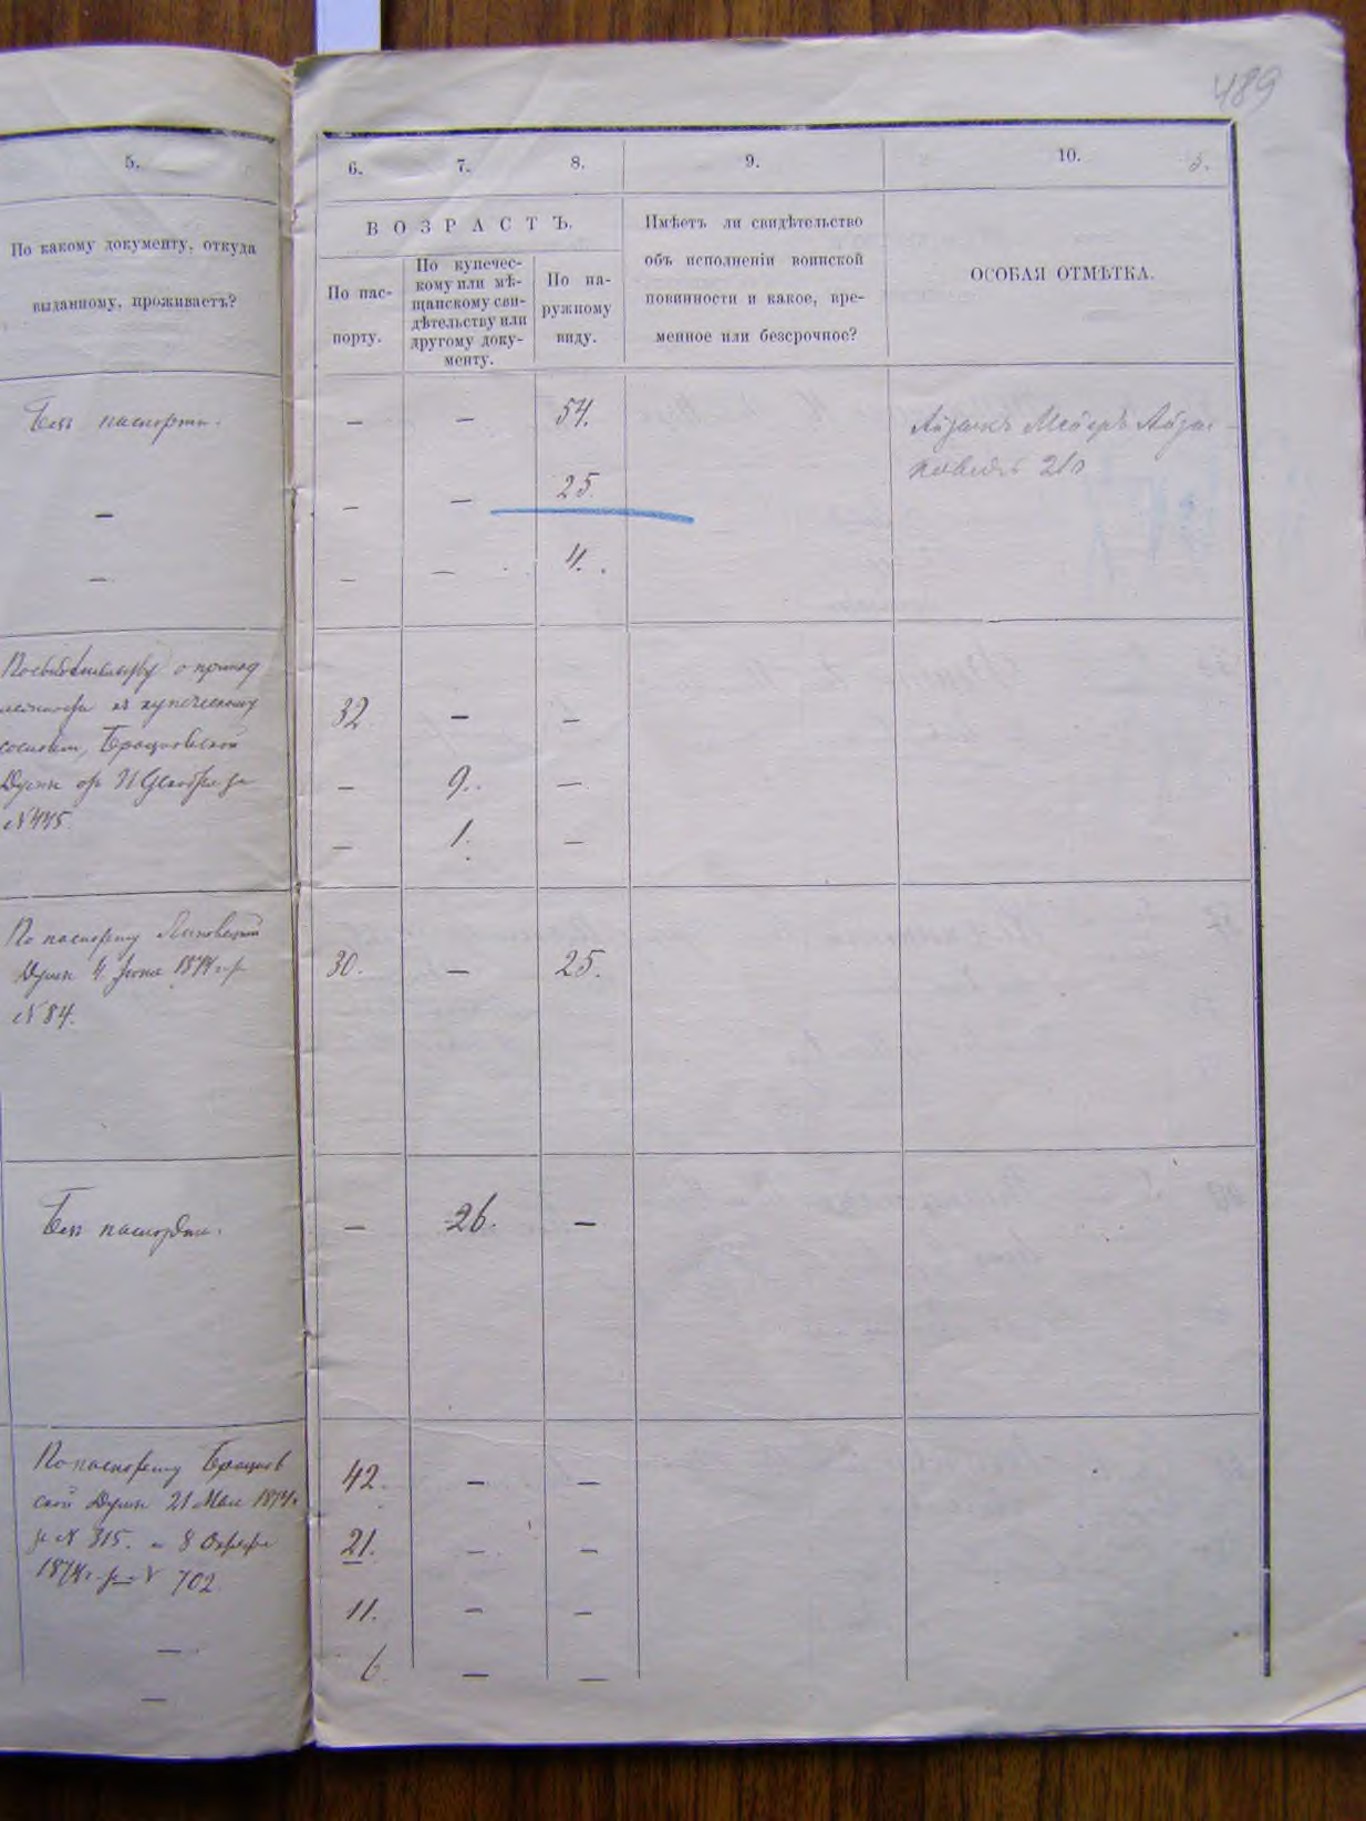 489
5.
6.
7.
8.
9.
10.
3.
По какому документу, откуда
выданному, проживаетъ?
ВОЗРАСТЪ.
По пас-
порту.
По купечес-
кому или мѣ-
щанскому сви-
дѣтельству или
другому доку-
менту.
По на-
ружному
виду.
Имѣетъ ли свидѣтельство
объ исполненіи воинской
повинности и какое, вре-
менное или безсрочное?
ОСОБАЯ ОТМѢТКА.
Безъ паспорта. — — 54.
Айзикъ Мейеръ Айзи-
ковичъ 21
— — — 25.
— — — 4.
о принад
къ купеческому
Брацлавской
Думы 31 Декабря
№ 445.
32 — —
— 9. —
— 1. —
По паспорту Липовецкой
Думы 4 Июня 1874 г.
№ 84.
30. — 25.
Безъ паспорта. — 26. —
По паспорту Брацлав
ской Думы 21 Мая 1874
№ 315. и 8 Октября
1874 г. за № 702
—
—
42. — —
21. — —
11. — —
6 — —